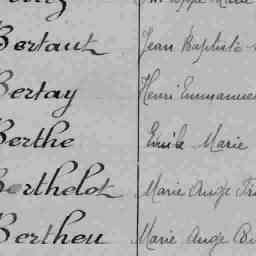 Bertaut Jean Baptiste
Bertay Henri Emmanuel
Berthe Emile Marie
Berthelot Marie Ange
Bertheu Marie Ange